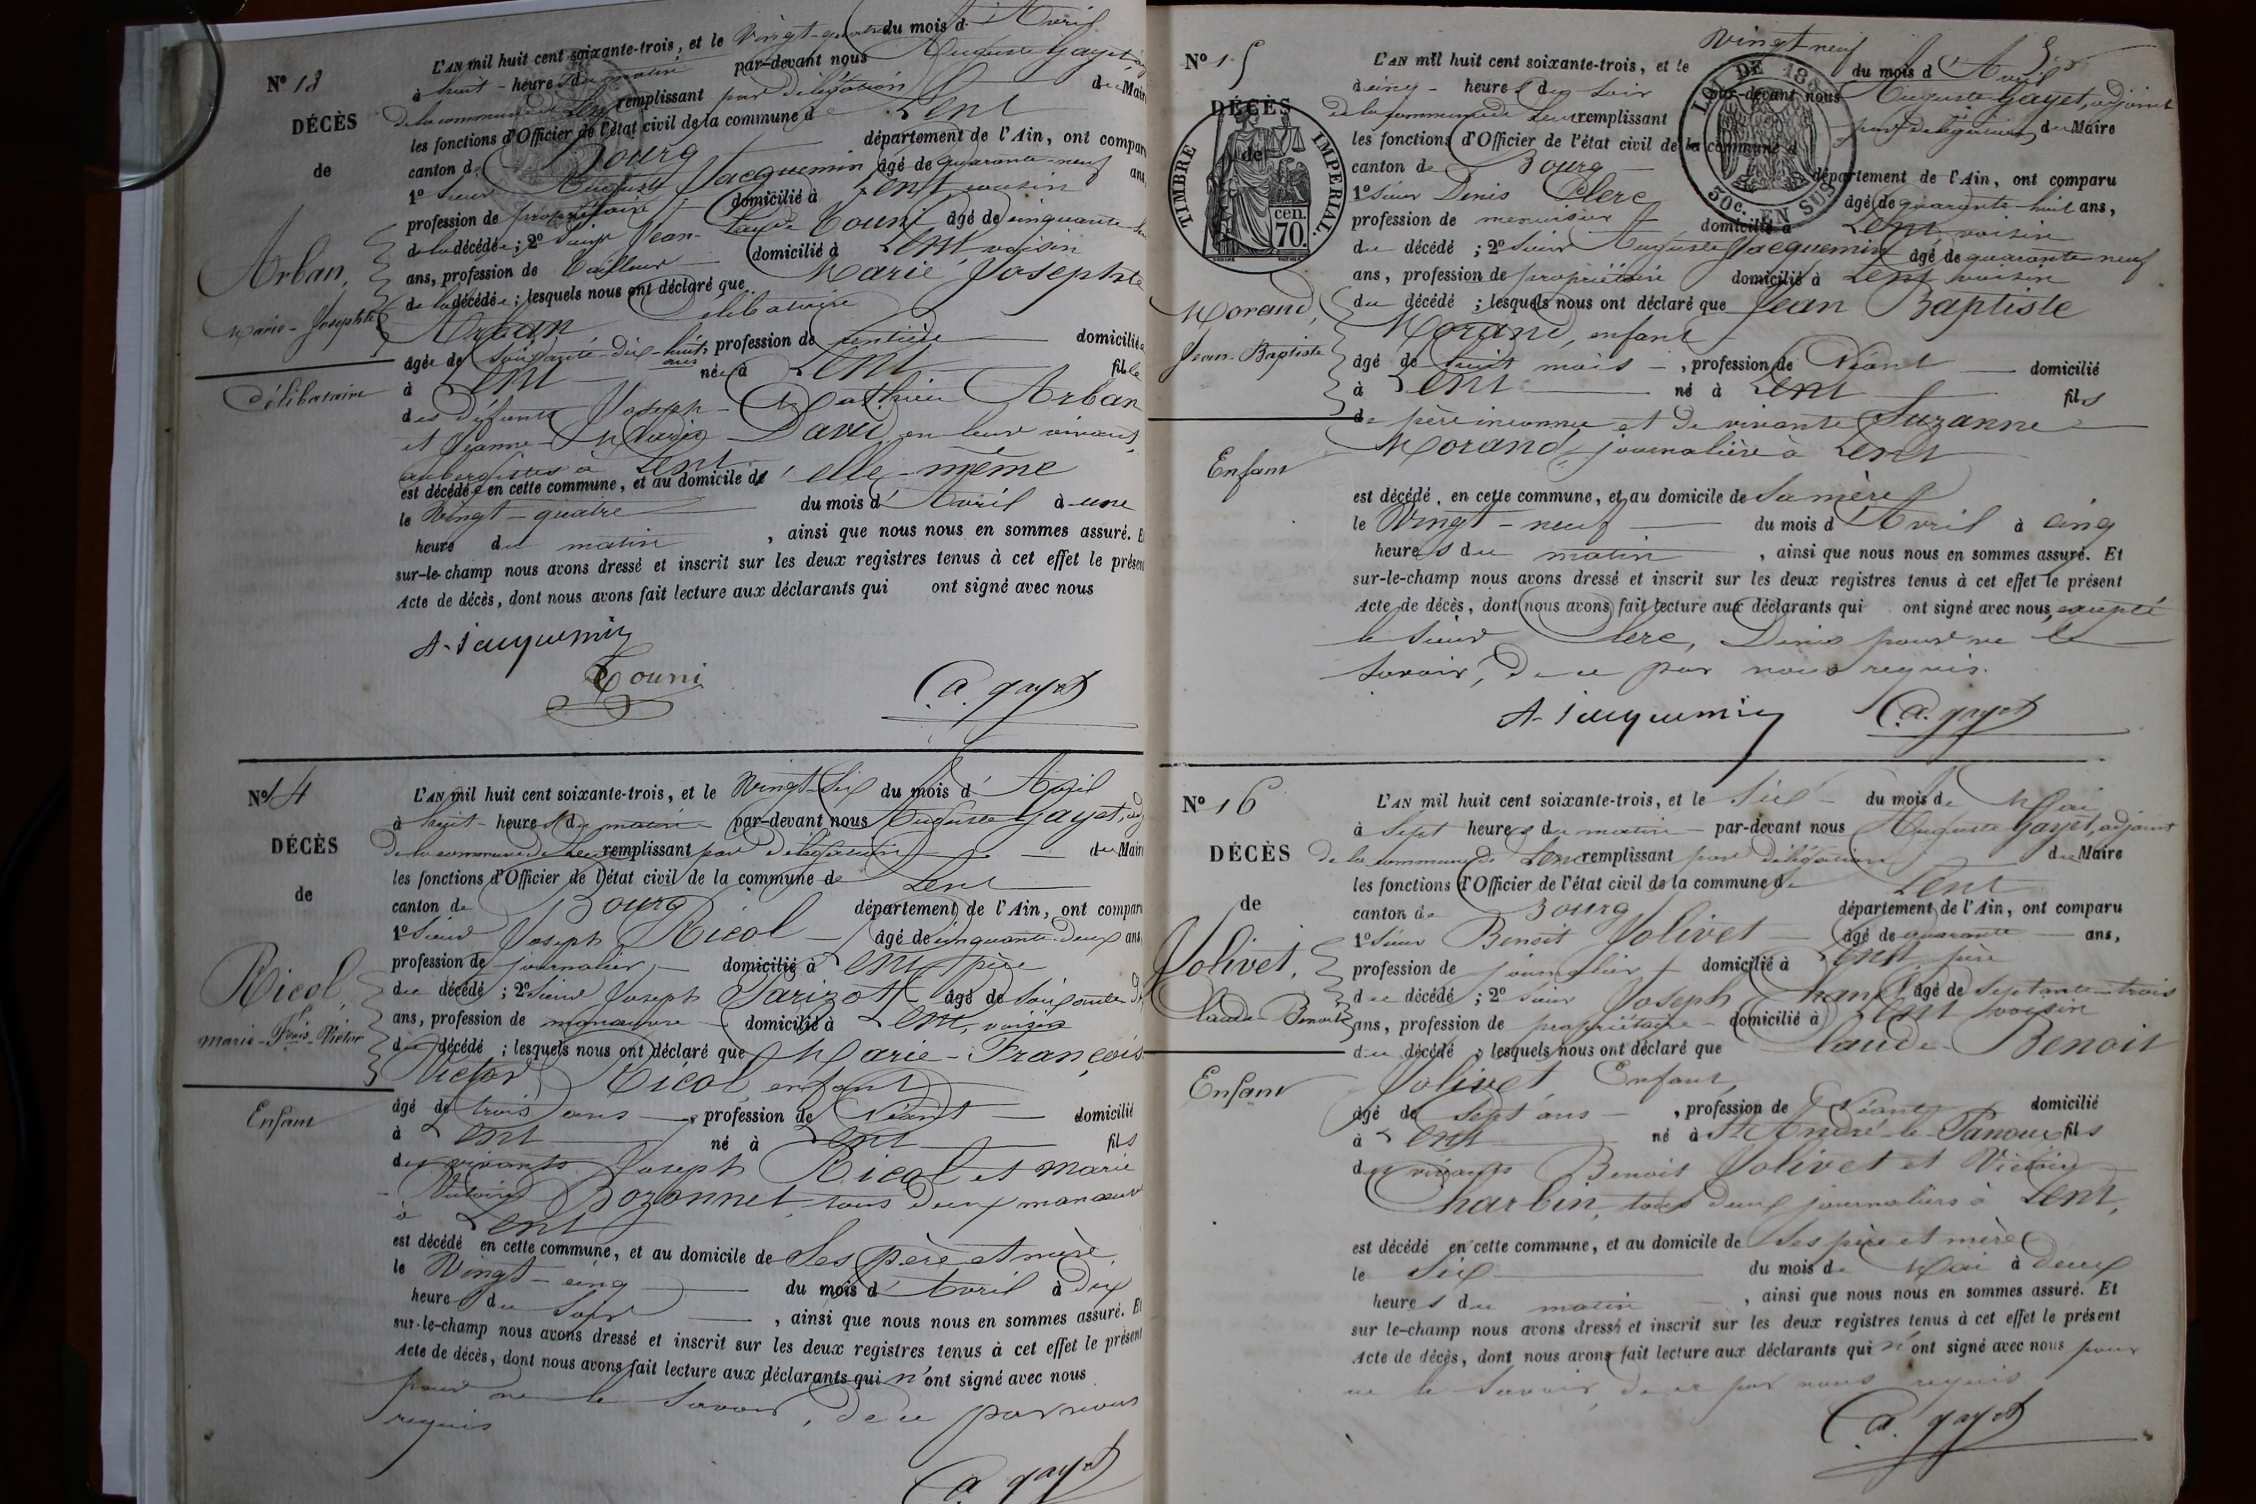 N° 13
DÉCÈS
de
Arban,
Marie-Josephte
Célibataire
L'AN mil huit cent soixante-trois, et le Vingt-quatre du mois d'Avril
à huit heures du matin par-devant nous Auguste Gayet
de la commune de Lent remplissant par délégation du Mair
les fonctions d'Officier de l'état civil de la commune de Lent
canton de Bourg département de l'Ain, ont compar
1° Sieur Auguste Jacquemin âgé de quarante-neuf ans
profession de propriétaire domicilié à Lent voisin
de la décédée; 2° Sieur Jean- Couni âgé de cinquante
ans, profession de tailleur domicilié à Lent voisin
de la décédée; lesquels nous ont déclaré que Marie Josephte
Arban Célibataire
âgée de soixante-dix-huit ans profession de rentière domiciliée
à Lent née à Lent fille
des défunts Joseph-Mathieu Arban
et Jeanne-Marie David, en leur vivant
aubergistes à Lent
est décédée en cette commune, et au domicile d'elle-même
le Vingt-quatre du mois d'Avril à une
heure du matin, ainsi que nous nous en sommes assuré. E
sur-le-champ nous avons dressé et inscrit sur les deux registres tenus à cet effet le présen
Acte de décès, dont nous avons fait lecture aux déclarants qui ont signé avec nous
A. Jacquemin
Couni
A. Gayet
N° 14
DÉCÈS
de
Ricol,
Marie-Fçois-Victor
Enfant
L'AN mil huit cent soixante-trois, et le Vingt-six du mois d'Avril
à huit heures du matin par-devant nous Auguste Gayet, adj
de la commune de Lent remplissant par délégation du Mair
les fonctions d'Officier de l'état civil de la commune de Lent
canton de Bourg département de l'Ain, ont compar
1° Sieur Joseph Ricol âgé de cinquante-deux ans
profession de journalier, domicilié à Lent père
du décédé; 2° Sieur Joseph Parizot âgé de soixante
ans, profession de manœuvre domicilié à Lent, voisin
du décédé; lesquels nous ont déclaré que Marie-François
Victor Ricol enfant
âgé de trois ans, profession de Néant domicilié
à Lent né à Lent fils
des vivants Joseph Ricol et Marie
Victoire Bozonnet, tous deux manœuvr
à Lent
est décédé en cette commune, et au domicile de Ses père et mère
le Vingt-cinq du mois d'Avril à dix
heures du Soir, ainsi que nous nous en sommes assuré. Et
sur-le-champ nous avons dressé et inscrit sur les deux registres tenus à cet effet le présent
Acte de décès, dont nous avons fait lecture aux déclarants qui n'ont signé avec nous
pour ne le Savoir, de ce par nous
requis
A. Gayet
N° 15
DÉCÈS
de
TIMBRE IMPERIAL.
70 cen.
LOI DE 18
30c. EN SUS
Morand,
Jean-Baptiste
Enfant
L'AN mil huit cent soixante-trois, et le Vingt-neuf du mois d'Avril
à cinq heures du soir par-devant nous Auguste Gayet, adjoint
de la commune de Lent remplissant par délégation du Maire
les fonctions d'Officier de l'état civil de la commune d
canton de Bourg département de l'Ain, ont comparu
1° Sieur Denis Clerc âgé de quarante-huit ans,
profession de menuisier domicilié à Lent voisin
du décédé; 2° Sieur Auguste Jacquemin âgé de quarante-neuf
ans, profession de propriétaire domicilié à Lent voisin
du décédé; lesquels nous ont déclaré que Jean Baptiste
Morand, enfant
âgé de huit mois, profession de Néant domicilié
à Lent né à Lent fils
de père inconnu et de vivante Suzanne
Morand, journalière à Lent
est décédé en cette commune, et au domicile de Sa mère
le Vingt-neuf du mois d'Avril à cinq
heures du matin, ainsi que nous nous en sommes assuré. Et
sur-le-champ nous avons dressé et inscrit sur les deux registres tenus à cet effet le présent
Acte de décès, dont nous avons fait lecture aux déclarants qui ont signé avec nous, excepté
le Sieur Clerc, Denis pour ne le
Savoir, de ce par nous requis.
A. Jacquemin
A. Gayet
N° 16
DÉCÈS
de
Jolivet,
Claude Benoit
Enfant
L'AN mil huit cent soixante-trois, et le Six du mois de Mai
à Sept heures du matin par-devant nous Auguste Gayet, adjoint
de la commune de Lent remplissant par délégation du Maire
les fonctions d'Officier de l'état civil de la commune de Lent
canton de Bourg département de l'Ain, ont comparu
1° Sieur Benoit Jolivet âgé de quarante ans,
profession de journalier domicilié à Lent, père
du décédé; 2° Sieur Joseph âgé de septante-trois
ans, profession de propriétaire domicilié à Lent voisin
du décédé; lesquels nous ont déclaré que Claude Benoit
Jolivet Enfant,
âgé de Sept ans, profession de Néant domicilié
à Lent né à St André-le-Panoux fils
des vivants Benoit Jolivet et Victoire
Charbin, tous deux journaliers à Lent,
est décédé en cette commune, et au domicile de Ses père et mère
le Six du mois de Mai à deux
heures du matin, ainsi que nous nous en sommes assuré. Et
sur le-champ nous avons dressé et inscrit sur les deux registres tenus à cet effet le présent
Acte de décès, dont nous avons fait lecture aux déclarants qui n'ont signé avec nous pour
ne le Savoir, de ce par nous requis
A. Gayet